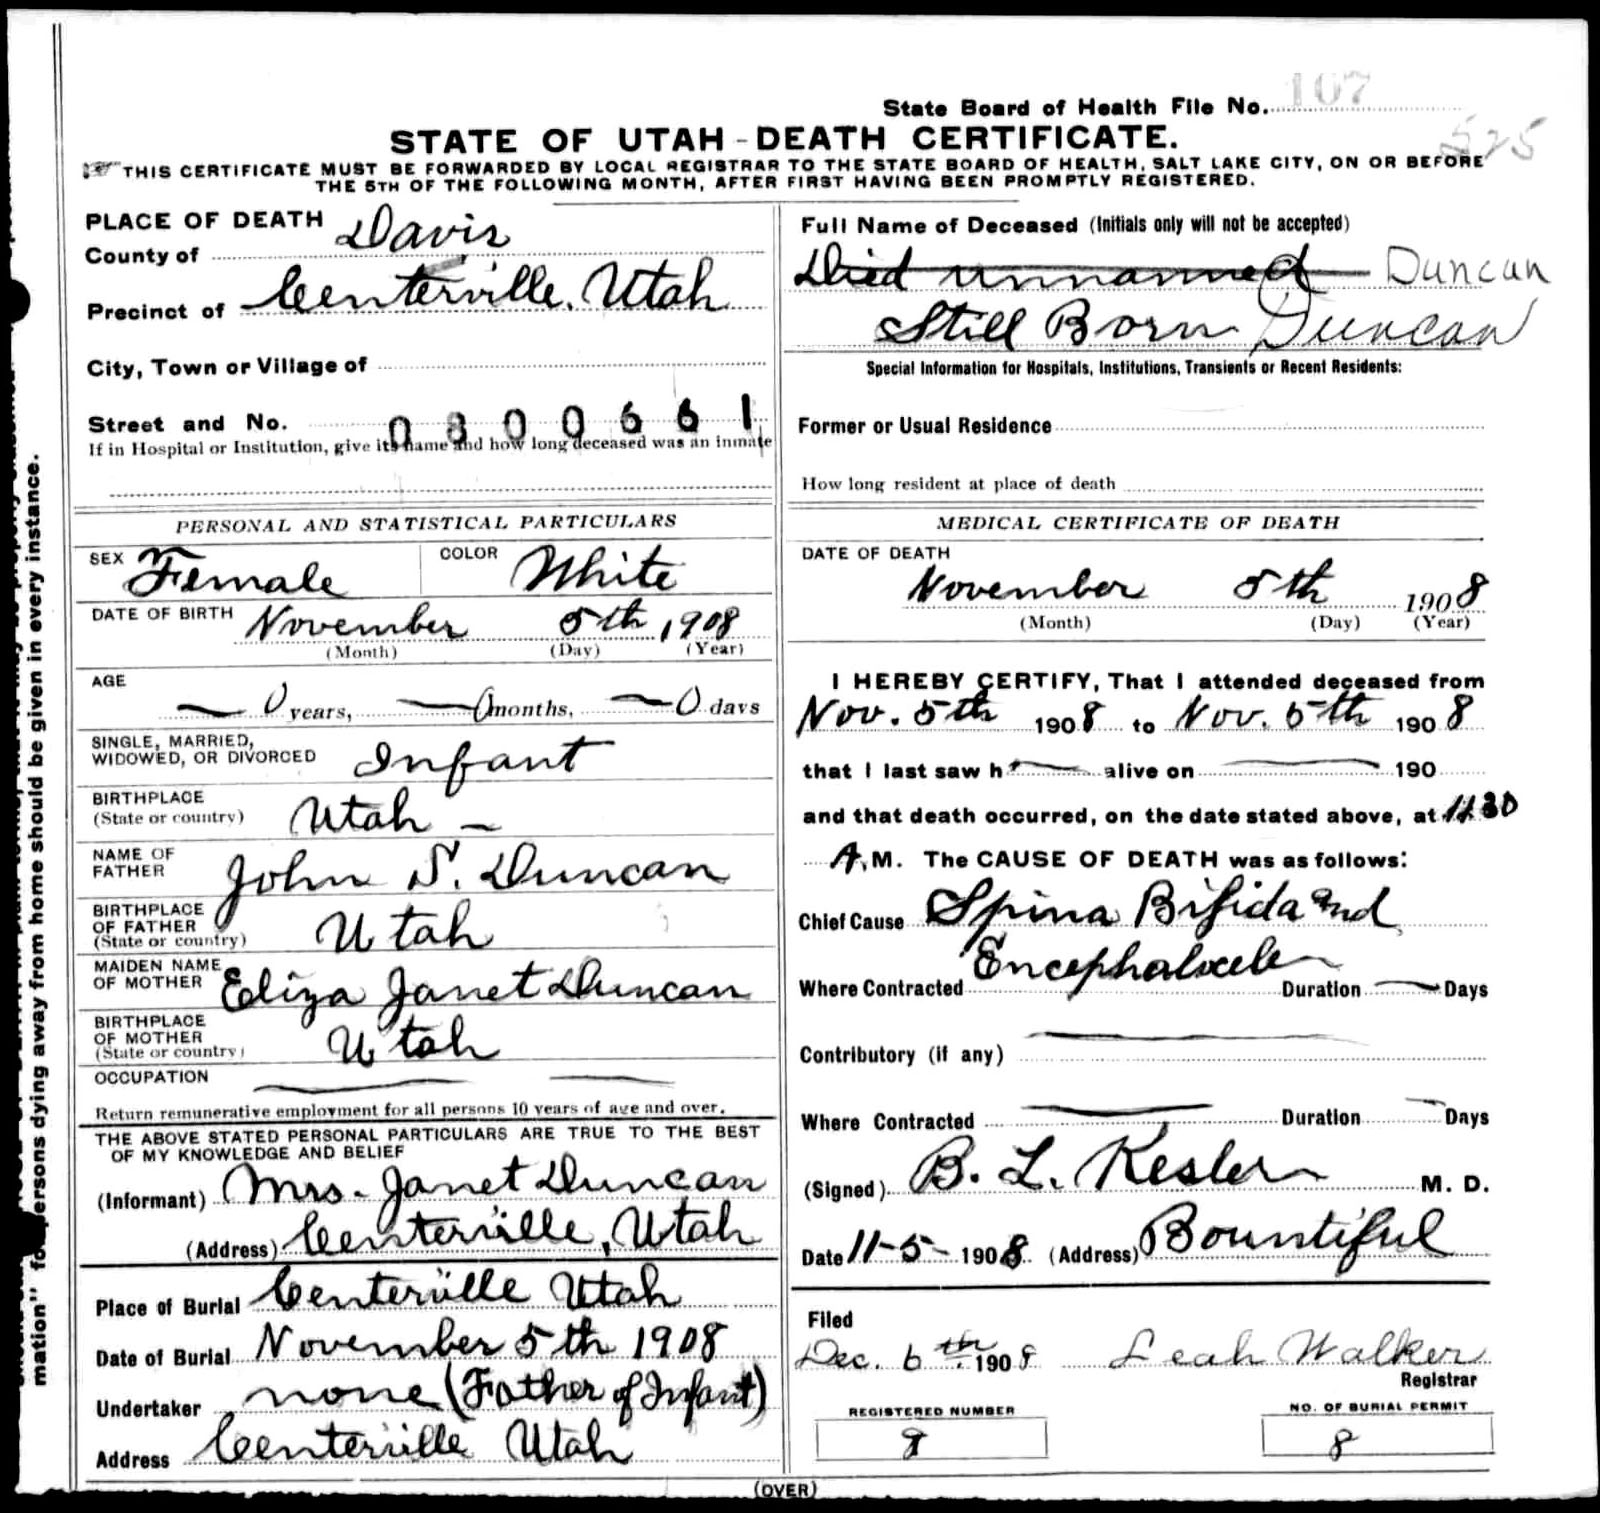 State Board of Health File No. 107
525
STATE OF UTAH - DEATH CERTIFICATE.
THIS CERTIFICATE MUST BE FORWARDED BY LOCAL REGISTRAR TO THE STATE BOARD OF HEALTH, SALT LAKE CITY, ON OR BEFORE
THE 5TH OF THE FOLLOWING MONTH, AFTER FIRST HAVING BEEN PROMPTLY REGISTERED.
PLACE OF DEATH
County of Davis
Precinct of Centerville, Utah
City, Town or Village of
Street and No. 0300661
If in Hospital or Institution, give its name and how long deceased was an inmate
PERSONAL AND STATISTICAL PARTICULARS
SEX Female COLOR White
DATE OF BIRTH November 5th, 1908
(Month) (Day) (Year)
AGE
0 years, 0 months, 0 days
SINGLE, MARRIED,
WIDOWED, OR DIVORCED Infant
BIRTHPLACE
(State or country) Utah –
NAME OF
FATHER John S. Duncan
BIRTHPLACE
OF FATHER
(State or country) Utah
MAIDEN NAME
OF MOTHER Eliza Janet Duncan
BIRTHPLACE
OF MOTHER
(State or country) Utah
OCCUPATION
Return remunerative employment for all persons 10 years of age and over.
THE ABOVE STATED PERSONAL PARTICULARS ARE TRUE TO THE BEST
OF MY KNOWLEDGE AND BELIEF
(Informant) Mrs. Janet Duncan
(Address) Centerville, Utah
Place of Burial Centerville Utah
Date of Burial November 5th 1908
Undertaker none (Father of Infant)
Address Centerville Utah
Full Name of Deceased (Initials only will not be accepted)
Died unnamed Duncan
Still Born Duncan
Special Information for Hospitals, Institutions, Transients or Recent Residents:
Former or Usual Residence
How long resident at place of death
MEDICAL CERTIFICATE OF DEATH
DATE OF DEATH
November 5th 1908
(Month) (Day) (Year)
I HEREBY CERTIFY, That I attended deceased from
Nov. 5th 1908 to Nov. 5th 1908
that I last saw h alive on 190
and that death occurred, on the date stated above, at 11.30
A.M. The CAUSE OF DEATH was as follows:
Chief Cause Spina Bifida and
Encephalocele
Where Contracted Duration Days
Contributory (if any)
Where Contracted Duration Days
(Signed) B. L. Kesler M. D.
Date 11-5- 1908 (Address) Bountiful
Filed
Dec. 6th 1908 Leah Walker
Registrar
REGISTERED NUMBER
8
NO. OF BURIAL PERMIT
8
(OVER)
mation" for persons dying away from home should be given in every instance.